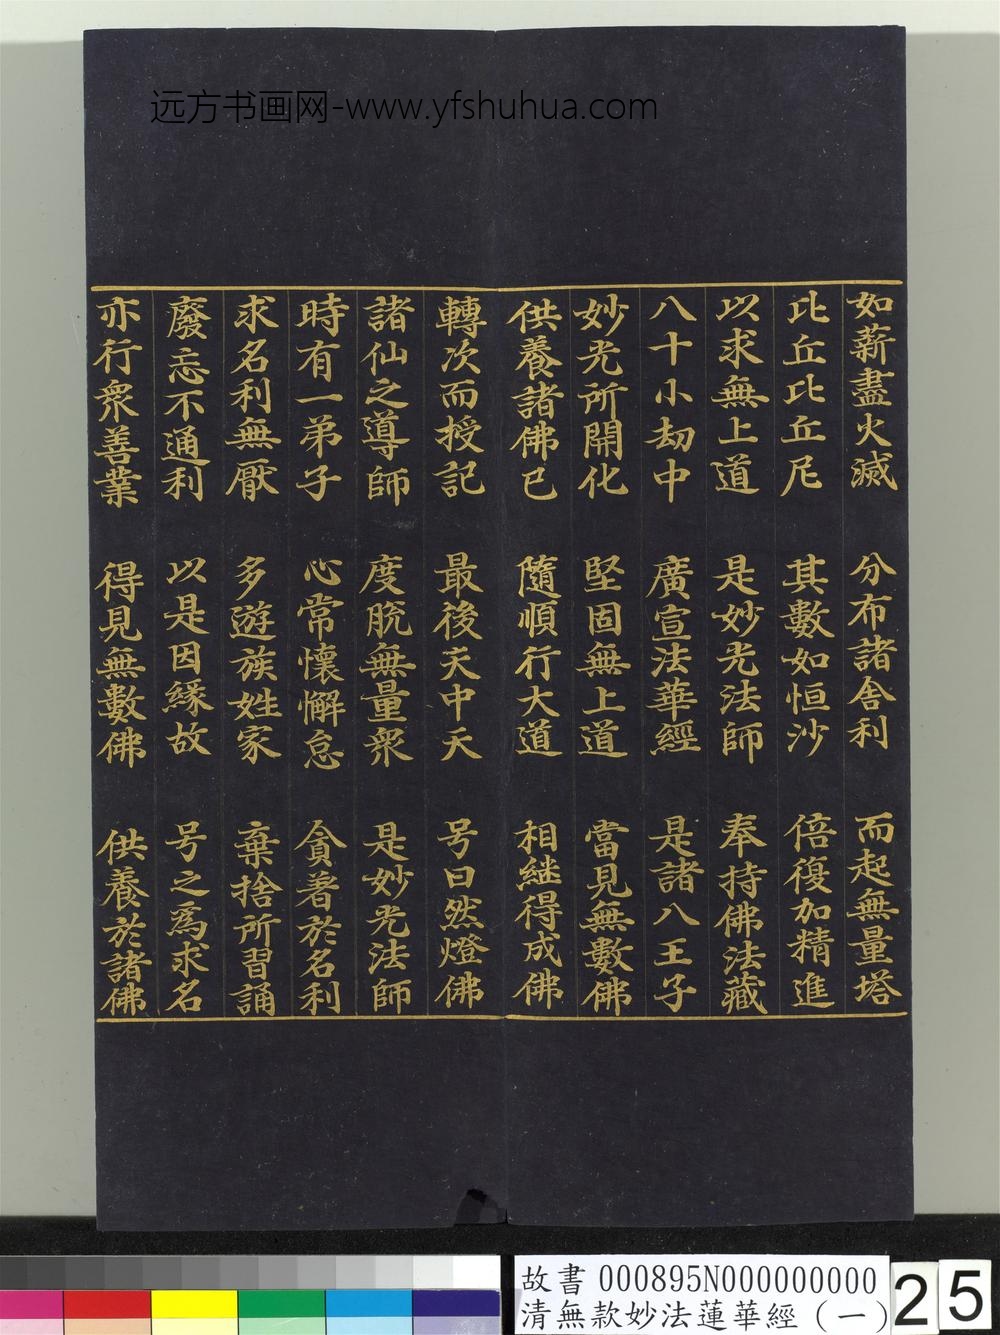 远方书画网-www.yfshuhua.com
如薪盡火滅 分布諸舍利 而起無量塔
比丘比丘尼 其數如恒沙 倍復加精進
以求無上道 是妙光法師 奉持佛法藏
八十小劫中 廣宣法華經 是諸八王子
妙光所開化 堅固無上道 當見無數佛
供養諸佛已 隨順行大道 相継得成佛
轉次而授記 最後天中天 号曰然燈佛
諸仙之導師 度脫無量衆 是妙光法師
時有一弟子 心常懷懈怠 貪著於名利
求名利無厭 多遊族姓家 棄捨所習誦
廢忘不通利 以是因緣故 号之爲求名
亦行衆善業 得見無數佛 供養於諸佛
故書 000895N000000000
清無款妙法蓮華經（一）
25